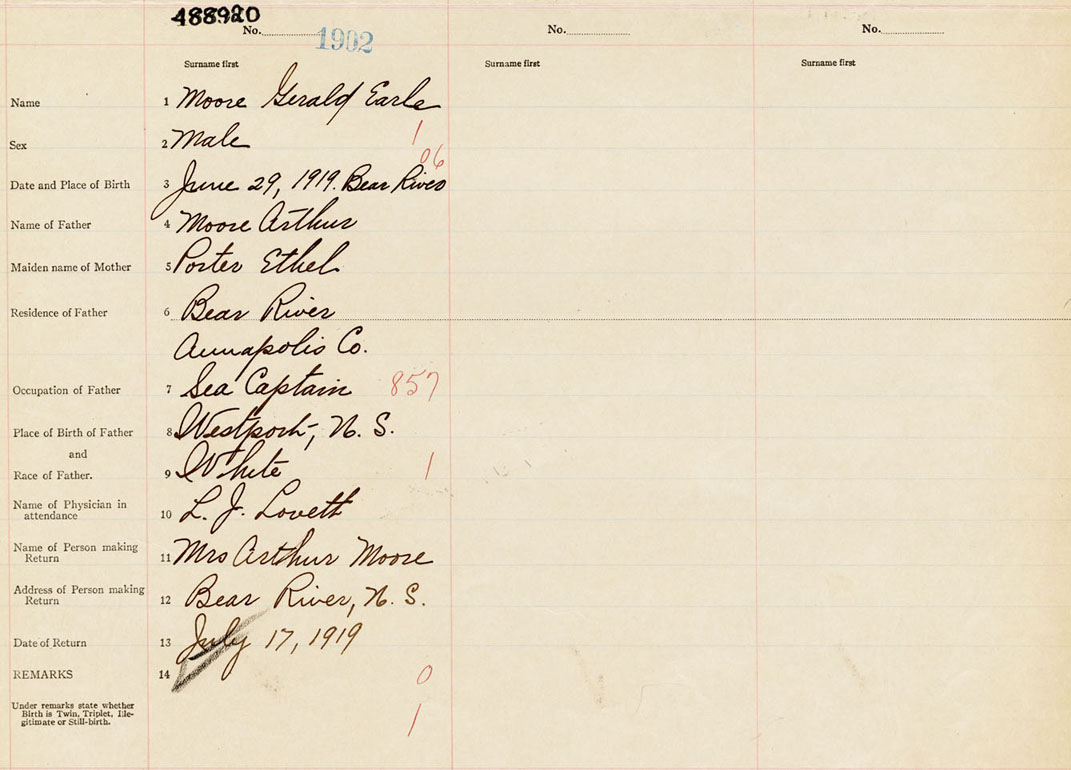 488920
No. 1902 No. No.
Surname first Surname first Surname first
Name 1 Moore Gerald Earle
Sex 2 Male 1
06
Date and Place of Birth 3 June 29, 1919. Bear River
Name of Father 4 Moore Arthur
Maiden name of Mother 5 Porter Ethel
Residence of Father 6 Bear River
Annapolis Co.
Occupation of Father 7 Sea Captain 857
Place of Birth of Father 8 Westport, N. S.
and
Race of Father. 9 White 1
Name of Physician in
attendance 10 L. J. Lovett
Name of Person making
Return 11 Mrs Arthur Moore
Address of Person making
Return 12 Bear River, N. S.
Date of Return 13 July 17, 1919
REMARKS 14 0
Under remarks state whether
Birth is Twin, Triplet, Ille-
gitimate or Still-birth. 1